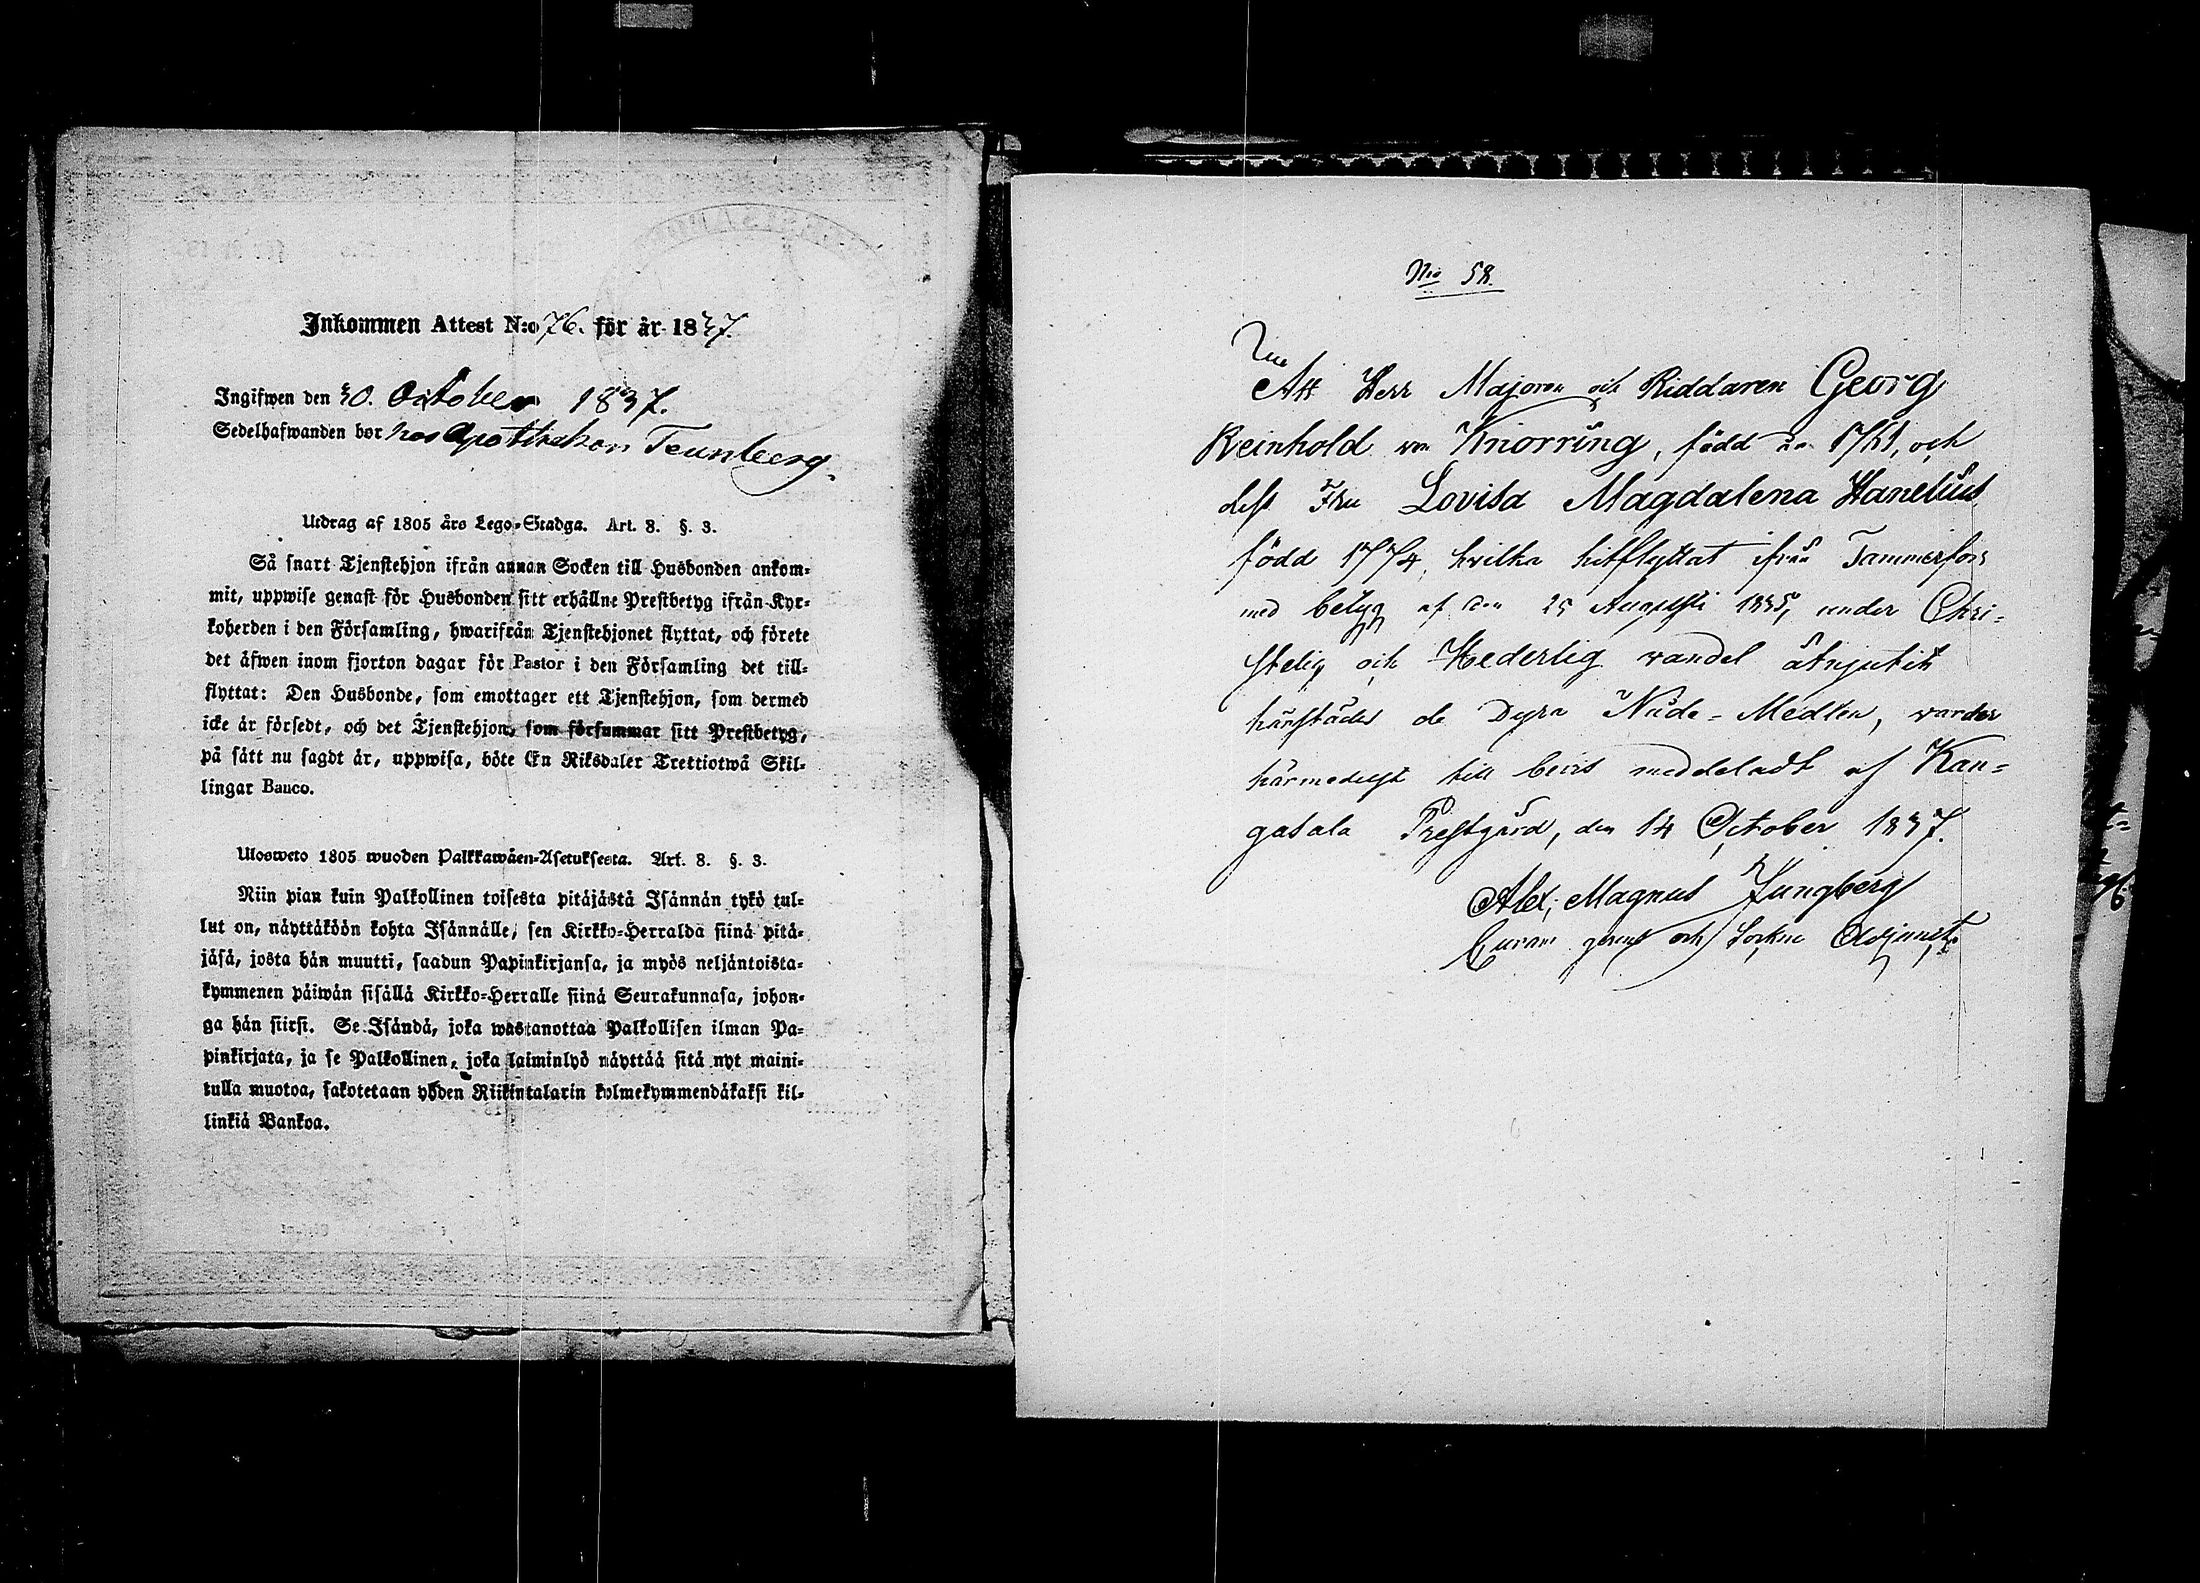 Inkommen Attest N:o 76. för år 1837.
Ingifwen den 30. October 1837.
Sedelhafwanden bor hos Apothekaren Tennberg.
Utdrag af 1805 års Lego-Stadga. Art. 8. §. 3.
Så snart Tjenstehjon ifrån annan Socken till Husbonden ankom-
mit, uppwise genast för Husbonden sitt erhållne Prestbetyg ifrån Kyr-
koherden i den Församling, hwarifrån Tjenstehjonet flyttat, och förete
det äfwen inom fjorton dagar för Pastor i den Församling det till-
flyttat: Den Husbonde, som emottager ett Tjenstehjon, som dermed
icke är försedt, och det Tjenstehjon, som försummar sitt Prestbetyg,
på sätt nu sagdt är, uppwisa, böte En Riksdaler Trettiotwå Skil-
lingar Banco.
Ulosweto 1805 wuoden Palkkawäen-Asetuksesta. Art. 8. §. 3.
Niin pian kuin Palkollinen toisesta pitäjästä Isännän tykö tul-
lut on, näyttäköön kohta Isännälle, sen Kirkko-Herralda siinä pitä-
jäsä, josta hän muutti, saadun Papinkirjansa, ja myös neljäntoista-
kymmenen päiwän sisällä Kirkko-Herralle siinä Seurakunnasa, johon-
ga hän siirsi. Se Isändä, joka wastanottaa Palkollisen ilman Pa-
pinkirjata, ja se Palkollinen, joka laiminlyö näyttää sitä nyt maini-
tulla muotoa, sakotetaan yhden Riikintalarin kolmekymmendäkaksi kil-
linkiä Bankoa.
No 58.
Att Herr Majoren och Riddaren Georg
Reinhold von Knorring, född 17 och
dess Fru Lovisa Magdalena Hanelius
född 1774, hvilka hitflyttat ifrån Tammerfors
med betyg af den 25 Augusti 1835, under Chri-
stelig och Hederlig vandel åtnjutit
härstädes de Dyra Nåde-Medlen, varder
härmedelst till bevis meddeladt af Kan-
gasala Prestgård, den 14 October 1837.
Alex. Magnus Ljungberg
Curam gerens och Sockne Adjunct.